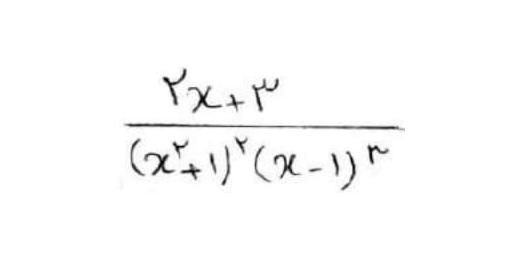 ۲x+۳
(x^۲+۱)^۲(x-۱)^۳